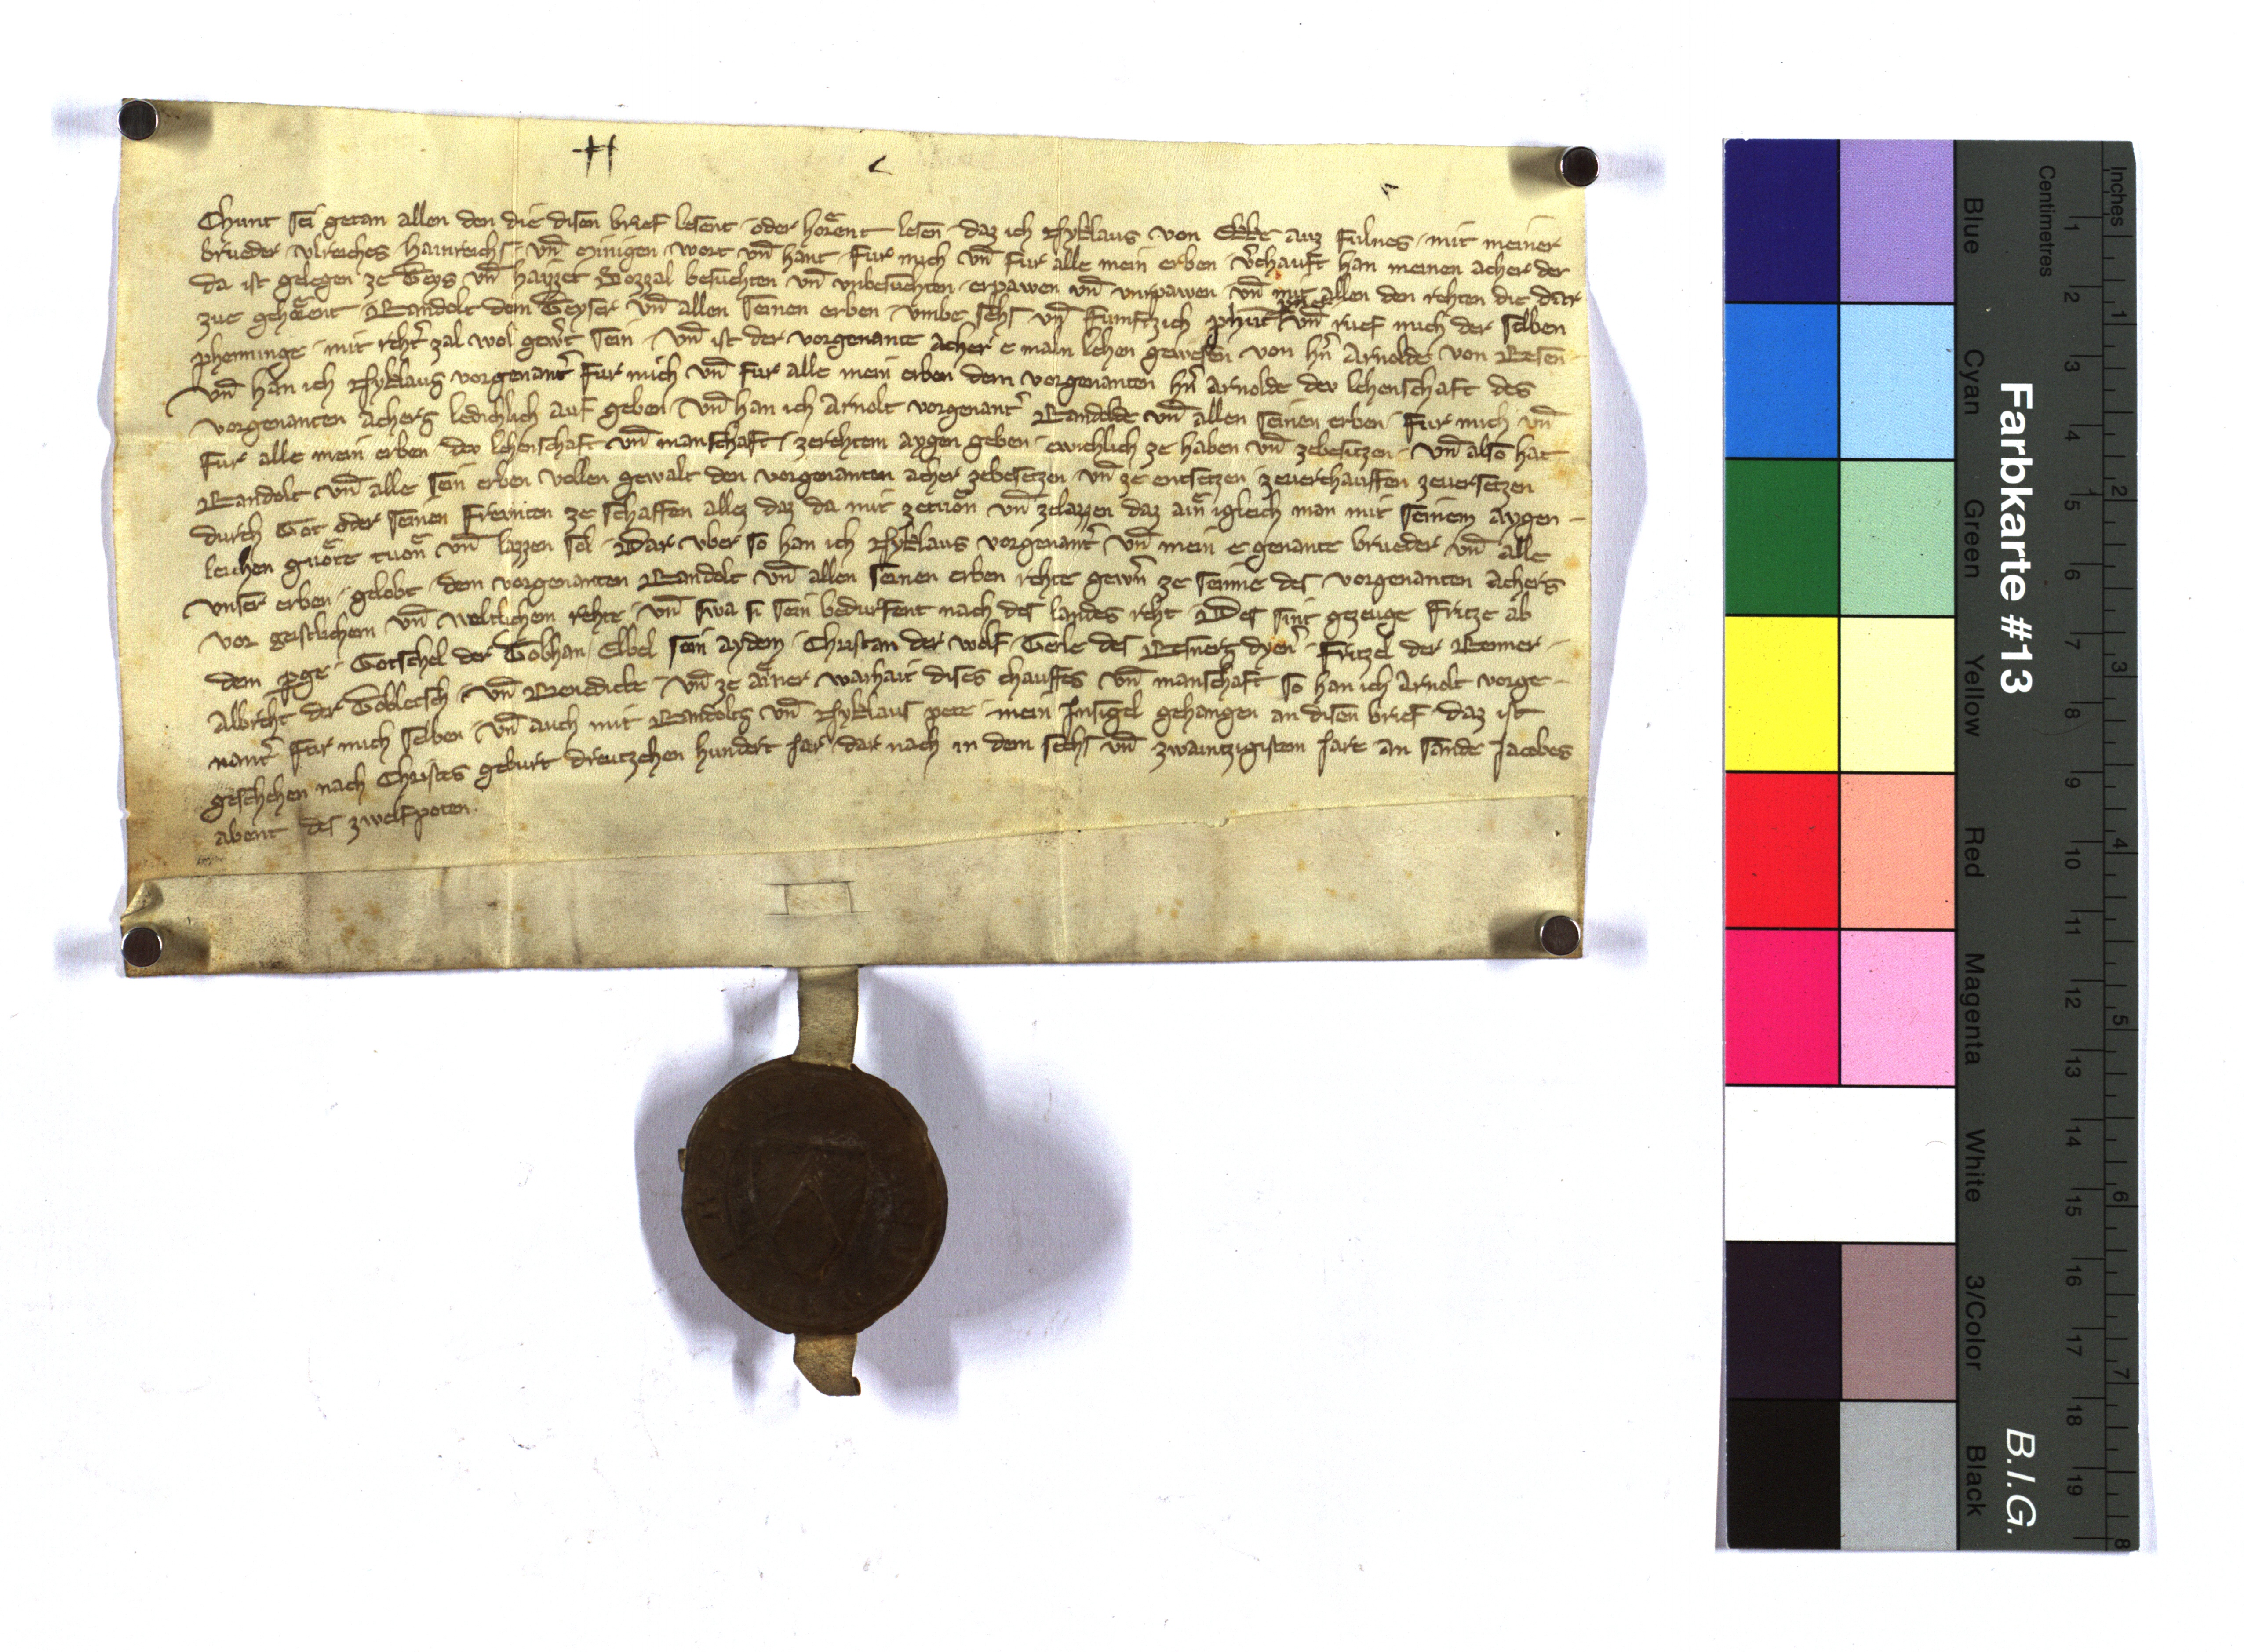 Chunt sei getan allen den die disen brief lesent · oder hoͤrent lesen · daz ich Nyklaus von Ekke auz Fulnes · mit meiner
brueder · Vlreiches Hainreichs · vn̄ Minigen · wort vn̄ hant · Fur mich vn̄ fur alle mein erben · v̓chauft han meinen acher der
da ist gelegen ze Teys vn̄ haizzet Bozzal besuchten vn̄ vnbesuchten · erpawen vn̄ vnrpawen · vn̄ mit allen den rehten die dar
zue gehoͤrent · Randolt dem Teyser vn̄ allen seinen erben · vmbe sehs vn̄ Fumftzich phūt vn̄ rief mich der selben
phenninge · mit reht̓ zal wol gew̓t sein · Vn̄ ist der vorgenante acher e maln lehen gewesen von hn̄ Arnolde von
Vn̄ han ich Nyklaus vorgenant̓ Fur mich vn̄ fur alle mein erben dem vorgenanten hn̄ Arnolde der lehenschaft des
vorgenanten achers ledichlich auf geben · Vn̄ han ich Arnolt vorgenant̓ Randolde vn̄ allen seinen erben · Fur mich vn̄
fur alle mein erben · der lehenschaft vn̄ manschaft · zerehtem aygen geben · ewichlich ze haben vn̄ zebesitzen · Vn̄ also hat
Randolt vn̄ alle sein erben vollen gewalt den vorgenanten acher zebesetzen vn̄ ze entsetzen · zeverchauffen zeversetzen
durch Got oder seinen freunten ze schaffen allez daz da mit zetuͦn vn̄ zelazzen daz ain igleich man mit seinem aygen-
leichen guͦte tuͦn vn̄ lazzen sol · Dar vber so han ich Nyklaus vorgenant̓ vn̄ mein e genante brueder vn̄ alle
vnser erben · gelobt · dem vorgenanten Randolt vn̄ allen seinen erben rehte gewn̄ ze seinne des vorgenanten achers
vor geistlichem vn̄ weltlichem rehte · vn̄ swa si sein bedurfent nach des landes reht · Des sint gezeuge Fritze ab
dem pge · Gotschel der Gobhan · Ekkel sein aydem · Christan der wolf · Gerle des dyen̓ · Fritzel der Renner ·
Albreht der · Vn̄ Benedicte · Vn̄ ze ainer warhait dises chauffes vn̄ manschaft so han ich Arnolt vorge-
nant̓ Fur mich selben · Vn̄ auch mit Randolts vn̄ Nyklaus pete · mein Insigel gehangen an disen brief · daz ist
geschehen nach Christes geburt dreutzehen hundert Jar · dar nach in dem sehs vn̄ zwaintzigistem Jare an sande Jacobes
abent des zwelfpoten.
Farbkarte #13
B.I.G.
Blue
Cyan
Green
Yellow
Red
Magenta
White
3/Color
Black
Centimetres
1 2 3 4 5 6 7 8 9 10 11 12 13 14 15 16 17 18 19
Inches
1 2 3 4 5 6 7 8